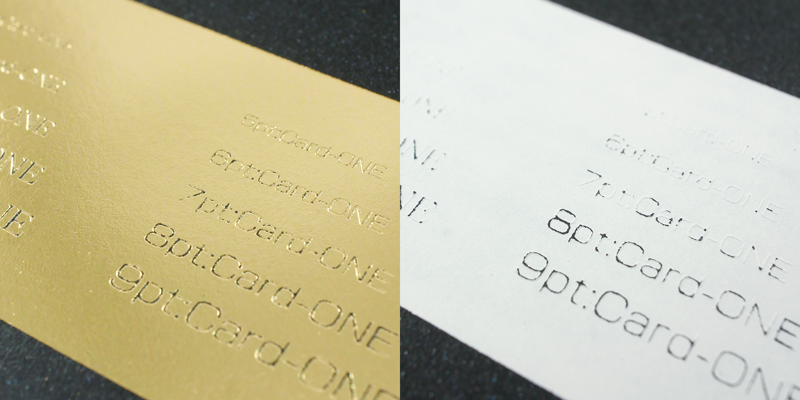 ONE
ONE
ONE
5pt:Card-ONE
6pt:Card-ONE
7pt:Card-ONE
8pt:Card-ONE
9pt:Card-ONE
6pt:Card-ONE
7pt:Card-ONE
8pt:Card-ONE
9pt:Card-ONE